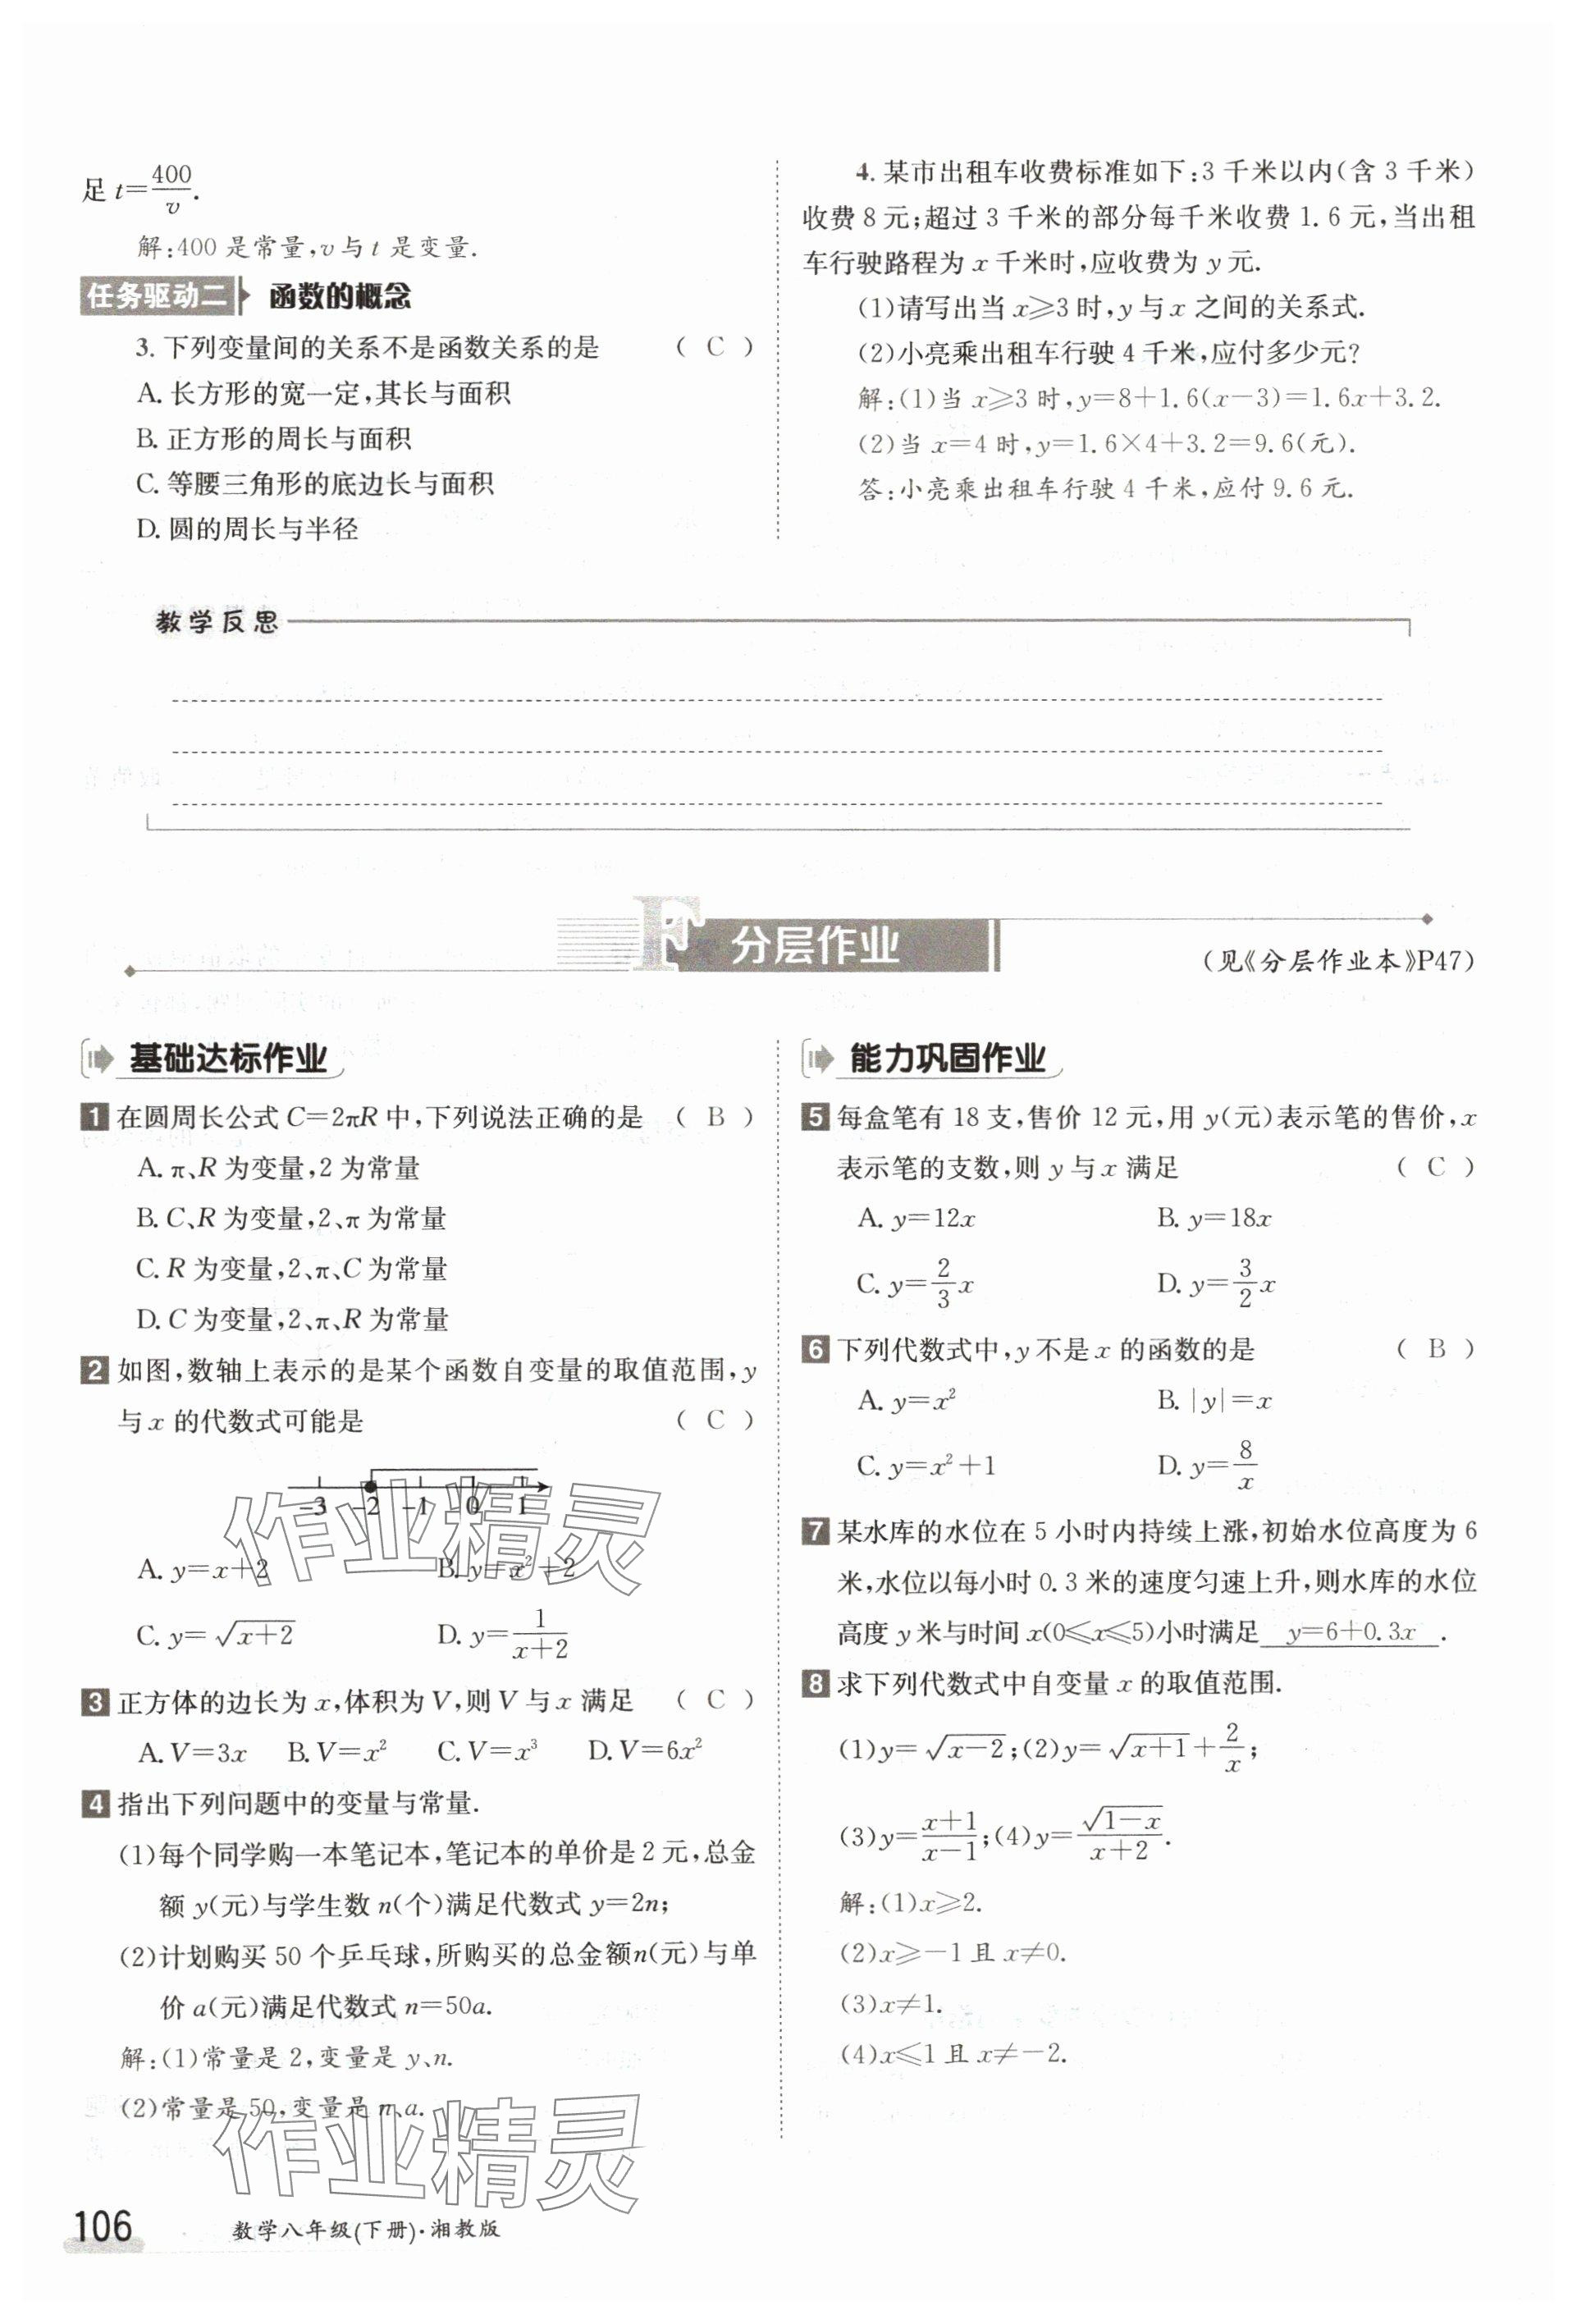 足 t=400/v.
解:400 是常量,v与 t 是变量.
任务驱动二 函数的概念
3. 下列变量间的关系不是函数关系的是 ( C )
A. 长方形的宽一定,其长与面积
B. 正方形的周长与面积
C. 等腰三角形的底边长与面积
D. 圆的周长与半径
4. 某市出租车收费标准如下:3 千米以内(含 3 千米)
收费 8 元;超过 3 千米的部分每千米收费 1.6 元,当出租
车行驶路程为 x 千米时,应收费为 y 元.
(1)请写出当 x⩾3 时,y 与 x 之间的关系式.
(2)小亮乘出租车行驶 4 千米,应付多少元?
解:(1)当 x⩾3 时,y=8+1.6(x-3)=1.6x+3.2.
(2)当 x=4 时,y=1.6×4+3.2=9.6(元).
答:小亮乘出租车行驶 4 千米,应付 9.6 元.
教学反思
F 分层作业
(见《分层作业本》P47)
基础达标作业
1 在圆周长公式 C=2πR 中,下列说法正确的是 ( B )
A. π、R 为变量,2 为常量
B. C、R 为变量,2、π 为常量
C. R 为变量,2、π、C 为常量
D. C 为变量,2、π、R 为常量
2 如图,数轴上表示的是某个函数自变量的取值范围,y
与 x 的代数式可能是 ( C )
-3 -2 -1 0 1
A. y=x+2 B. y=x²+2
C. y=√(x+2) D. y=1/(x+2)
3 正方体的边长为 x,体积为 V,则 V 与 x 满足 ( C )
A. V=3x B. V=x² C. V=x³ D. V=6x²
4 指出下列问题中的变量与常量.
(1)每个同学购一本笔记本,笔记本的单价是 2 元,总金
额 y(元)与学生数 n(个)满足代数式 y=2n;
(2)计划购买 50 个乒乓球,所购买的总金额n(元)与单
价 a(元)满足代数式 n=50a.
解:(1)常量是 2,变量是 y、n.
(2)常量是 50,变量是 n、a.
能力巩固作业
5 每盒笔有 18 支,售价 12 元,用 y(元)表示笔的售价,x
表示笔的支数,则 y 与 x 满足 ( C )
A. y=12x B. y=18x
C. y=2/3x D. y=3/2x
6 下列代数式中,y 不是 x 的函数的是 ( B )
A. y=x² B. |y|=x
C. y=x²+1 D. y=8/x
7 某水库的水位在 5 小时内持续上涨,初始水位高度为 6
米,水位以每小时 0.3 米的速度匀速上升,则水库的水位
高度 y 米与时间 x(0⩽x⩽5)小时满足 y=6+0.3x .
8 求下列代数式中自变量 x 的取值范围.
(1)y=√(x-2);(2)y=√(x+1)+2/x;
(3)y=(x+1)/(x-1);(4)y=√(1-x)/(x+2).
解:(1)x⩾2.
(2)x⩾-1 且 x≠0.
(3)x≠1.
(4)x⩽1 且 x≠-2.
作业精灵
作业精灵
106 数学八年级(下册)·湘教版